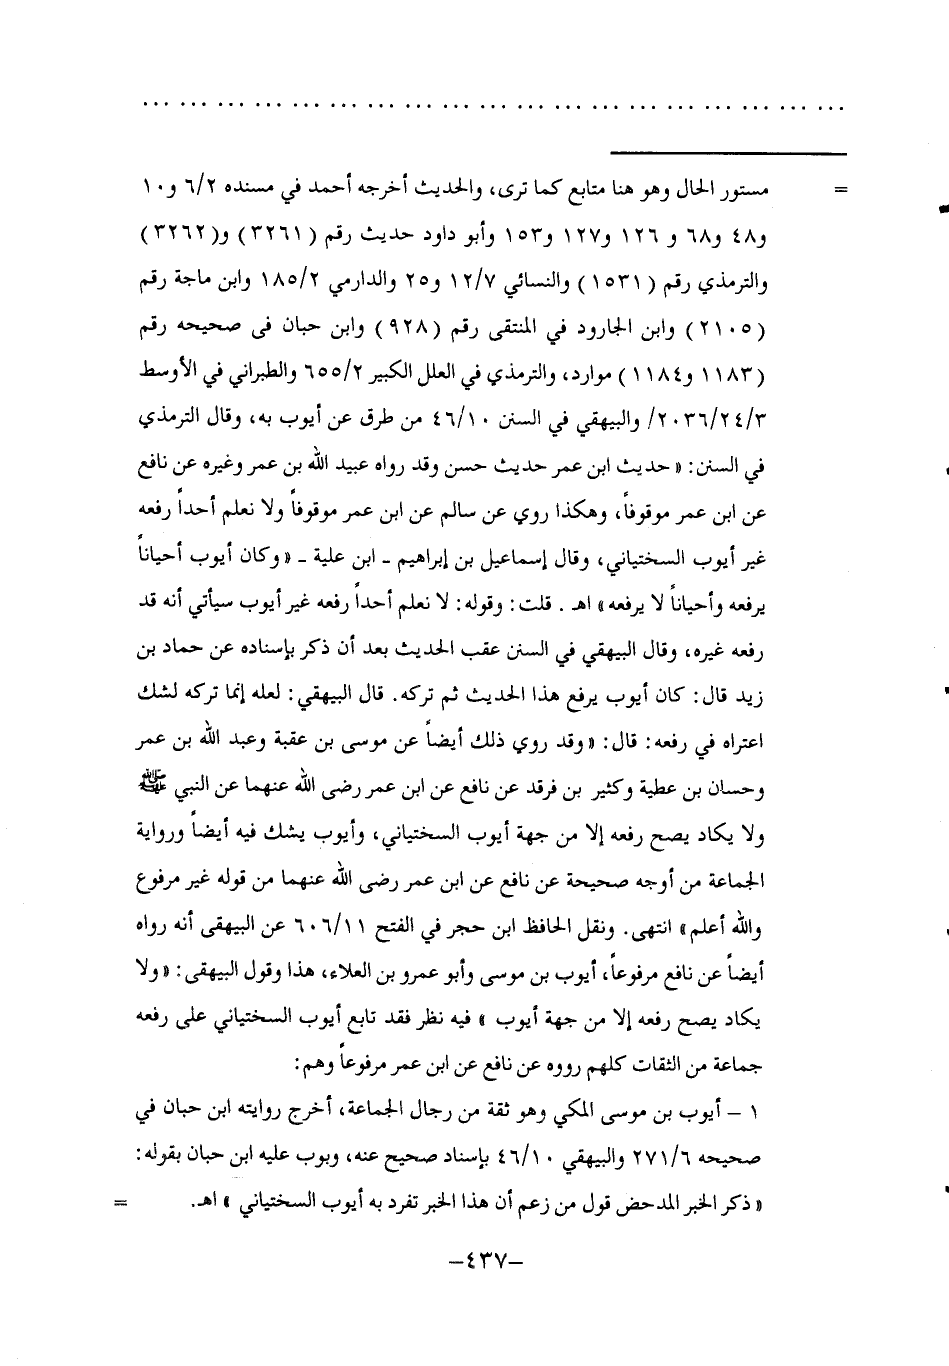 ... ... ... ... ... ... ... ... ... ... ... ... ... ... ... ... ... ... ...
= مستور الحال وهو هنا متابع كما ترى، والحديث أخرجه أحمد في مسنده ٦/٢ و١٠
و٤٨ و٦٨ و ١٢٦ و١٢٧ و١٥٣ وأبو داود حديث رقم (٣٢٦١) و(٣٢٦٢)
والترمذي رقم (١٥٣١) والنسائي ١٢/٧ و٢٥ والدارمي ١٨٥/٢ وابن ماجة رقم
(٢١٠٥) وابن الجارود في المنتقى رقم (٩٢٨) وابن حبان فى صحيحه رقم
(١١٨٣ و١١٨٤) موارد، والترمذي في العلل الكبير ٦٥٥/٢ والطبراني في الأوسط
٢٠٣٦/٢٤/٣/ والبيهقي في السنن ٤٦/١٠ من طرق عن أيوب به، وقال الترمذي
في السنن: «حديث ابن عمر حديث حسن وقد رواه عبيد الله بن عمر وغيره عن نافع
عن ابن عمر موقوفاً، وهكذا روي عن سالم عن ابن عمر موقوفاً ولا نعلم أحداً رفعه
غير أيوب السختياني، وقال إسماعيل بن إبراهيم - ابن علية - «وكان أيوب أحياناً
يرفعه وأحياناً لا يرفعه» اهـ. قلت: وقوله: لا نعلم أحداً رفعه غير أيوب سيأتي أنه قد
رفعه غيره، وقال البيهقي في السنن عقب الحديث بعد أن ذكر بإسناده عن حماد بن
زيد قال: كان أيوب يرفع هذا الحديث ثم تركه. قال البيهقي: لعله إنما تركه لشك
اعتراه في رفعه: قال: «وقد روي ذلك أيضاً عن موسى بن عقبة وعبد الله بن عمر
وحسان بن عطية وكثير بن فرقد عن نافع عن ابن عمر رضى الله عنهما عن النبي ﷺ
ولا يكاد يصح رفعه إلا من جهة أيوب السختياني، وأيوب يشك فيه أيضاً ورواية
الجماعة من أوجه صحيحة عن نافع عن ابن عمر رضى الله عنهما من قوله غير مرفوع
والله أعلم» انتهى. ونقل الحافظ ابن حجر في الفتح ٦٠٦/١١ عن البيهقى أنه رواه
أيضاً عن نافع مرفوعاً، أيوب بن موسى وأبو عمرو بن العلاء، هذا وقول البيهقى: «ولا
يكاد يصح رفعه إلا من جهة أيوب» فيه نظر فقد تابع أيوب السختياني على رفعه
جماعة من الثقات كلهم رووه عن نافع عن ابن عمر مرفوعاً وهم:
١ - أيوب بن موسى المكي وهو ثقة من رجال الجماعة، أخرج روايته ابن حبان في
صحيحه ٢٧١/٦ والبيهقي ٤٦/١٠ بإسناد صحيح عنه، وبوب عليه ابن حبان بقوله:
«ذكر الخبر المدحض قول من زعم أن هذا الخبر تفرد به أيوب السختياني» اهـ. =
-٤٣٧-